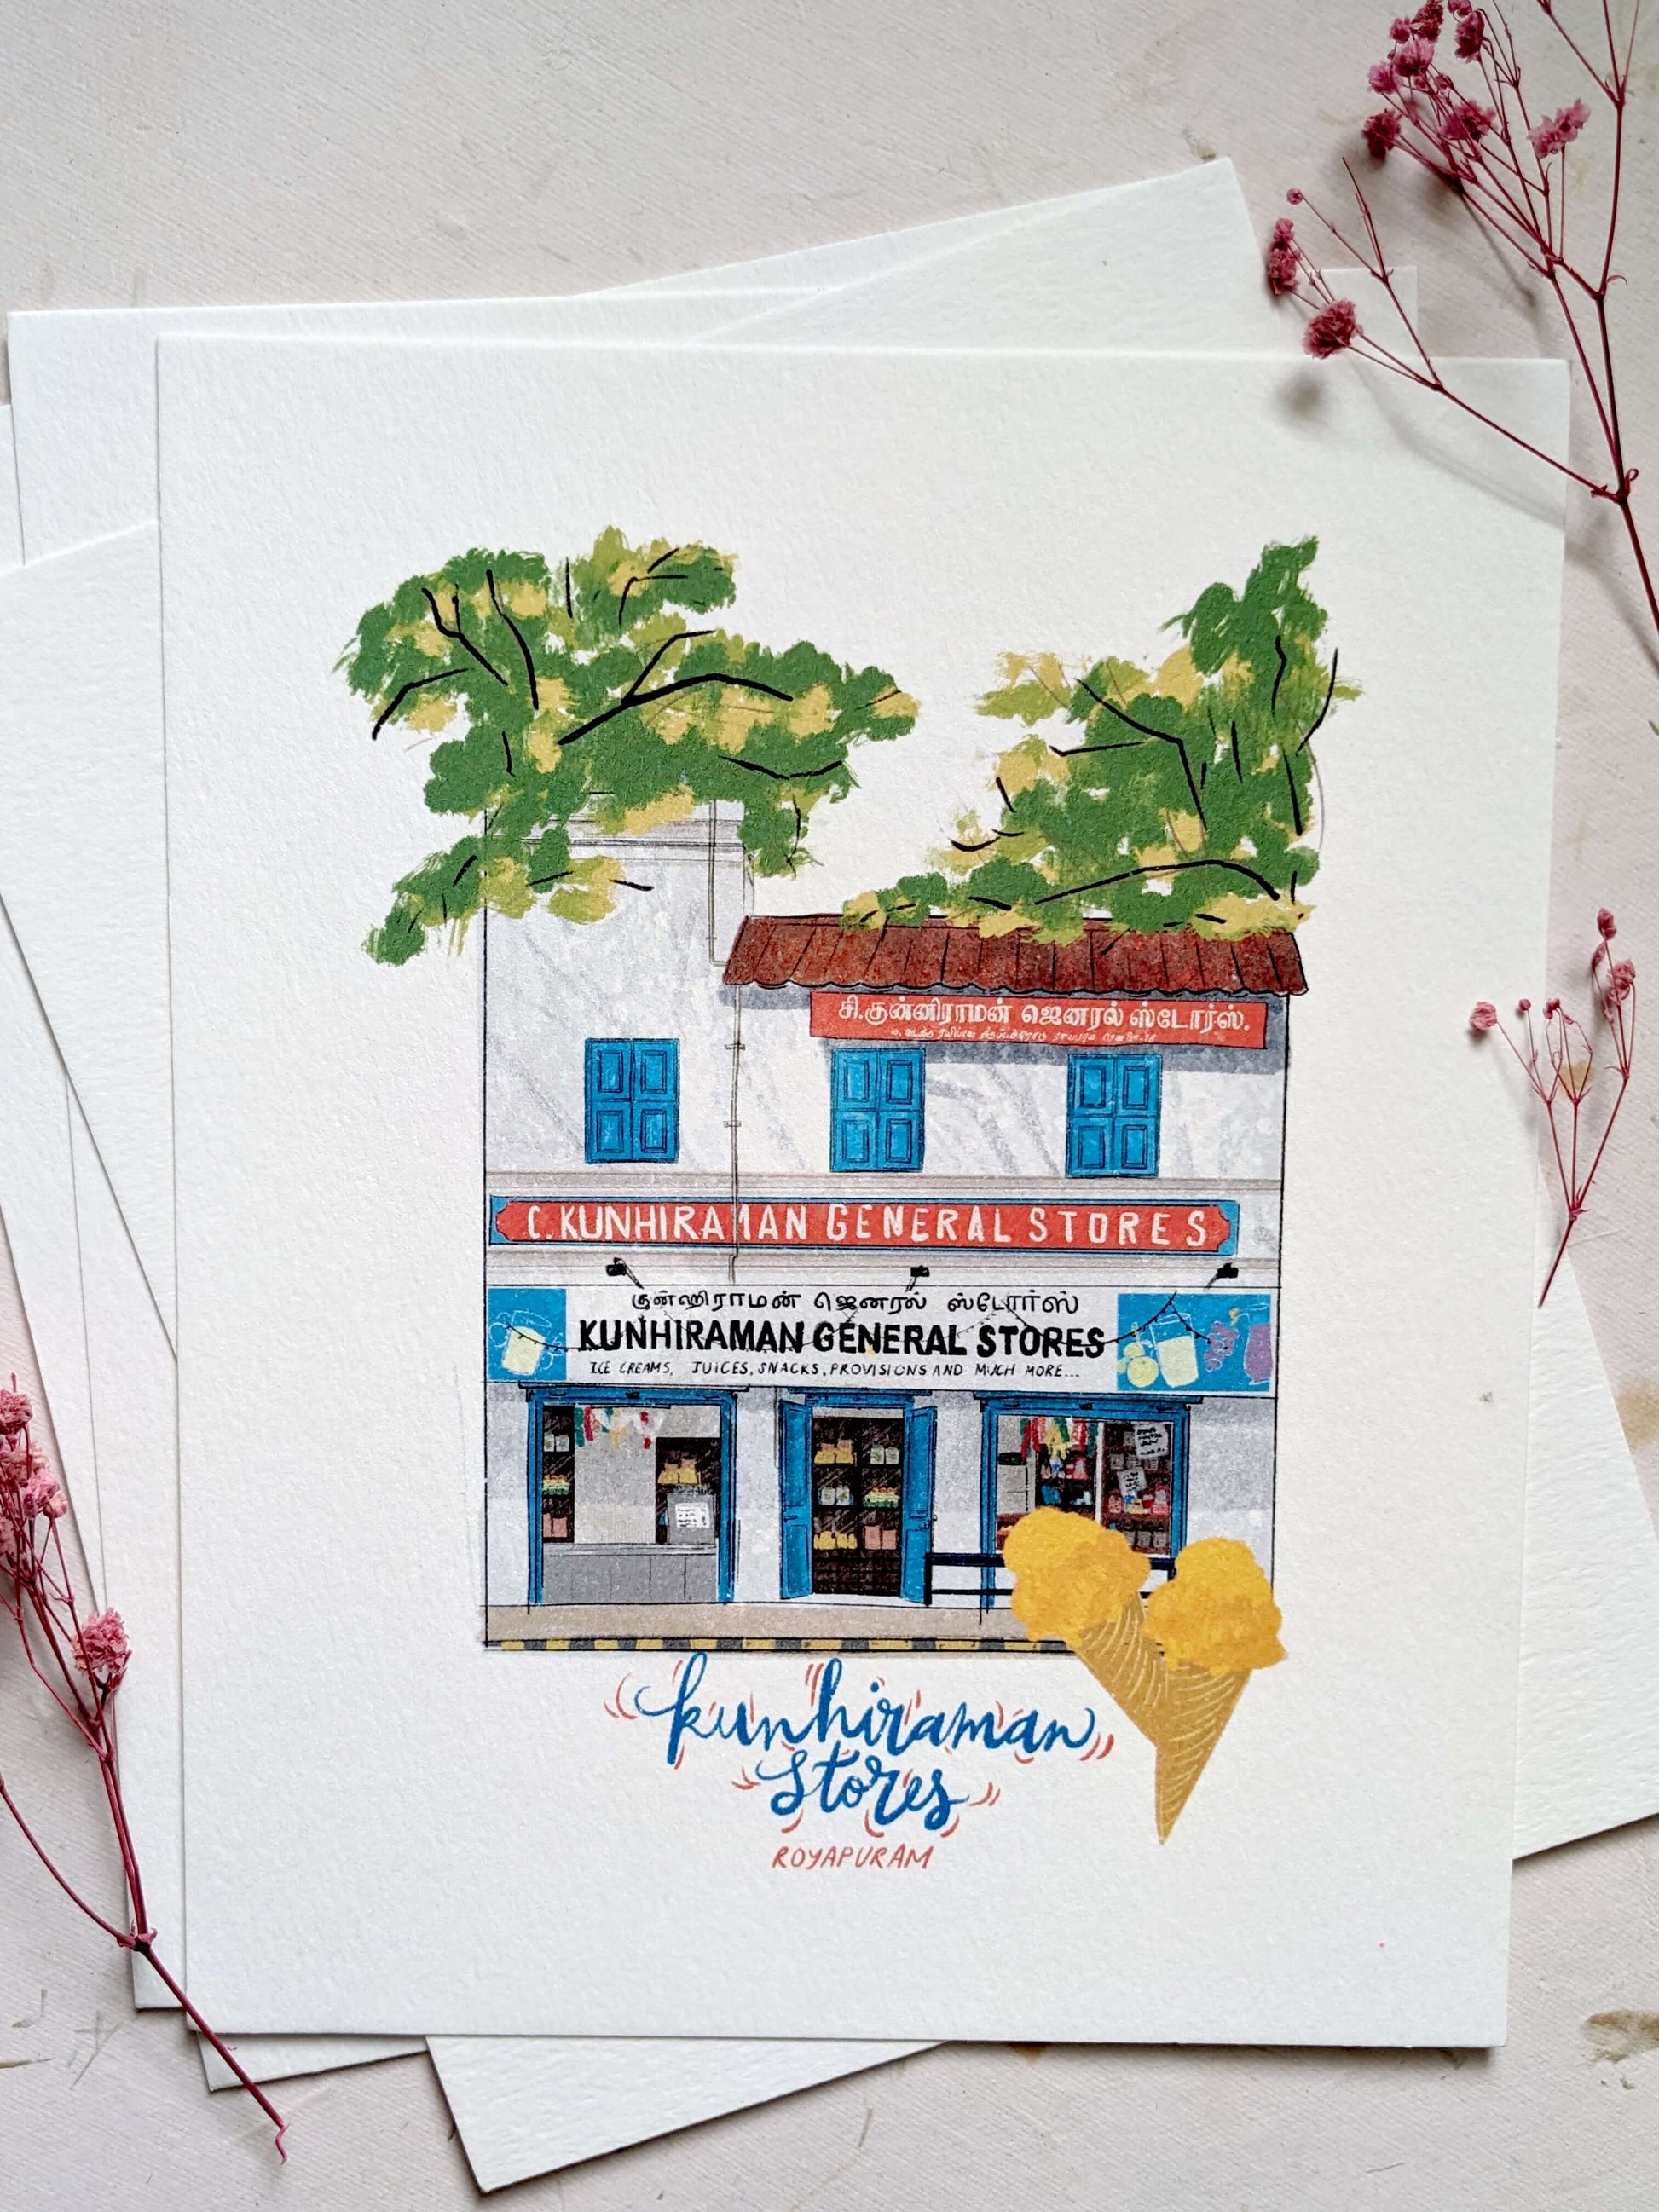 சி.குன்னிராமன் ஜெனரல் ஸ்டோர்ஸ்.
C. KUNHIRAMAN GENERAL STORES
குன்ஹிராமன் ஜெனரல் ஸ்டோர்ஸ்
KUNHIRAMAN GENERAL STORES
ICE CREAMS, JUICES, SNACKS, PROVISIONS AND MUCH MORE...
kunhiraman
stores
ROYAPURAM